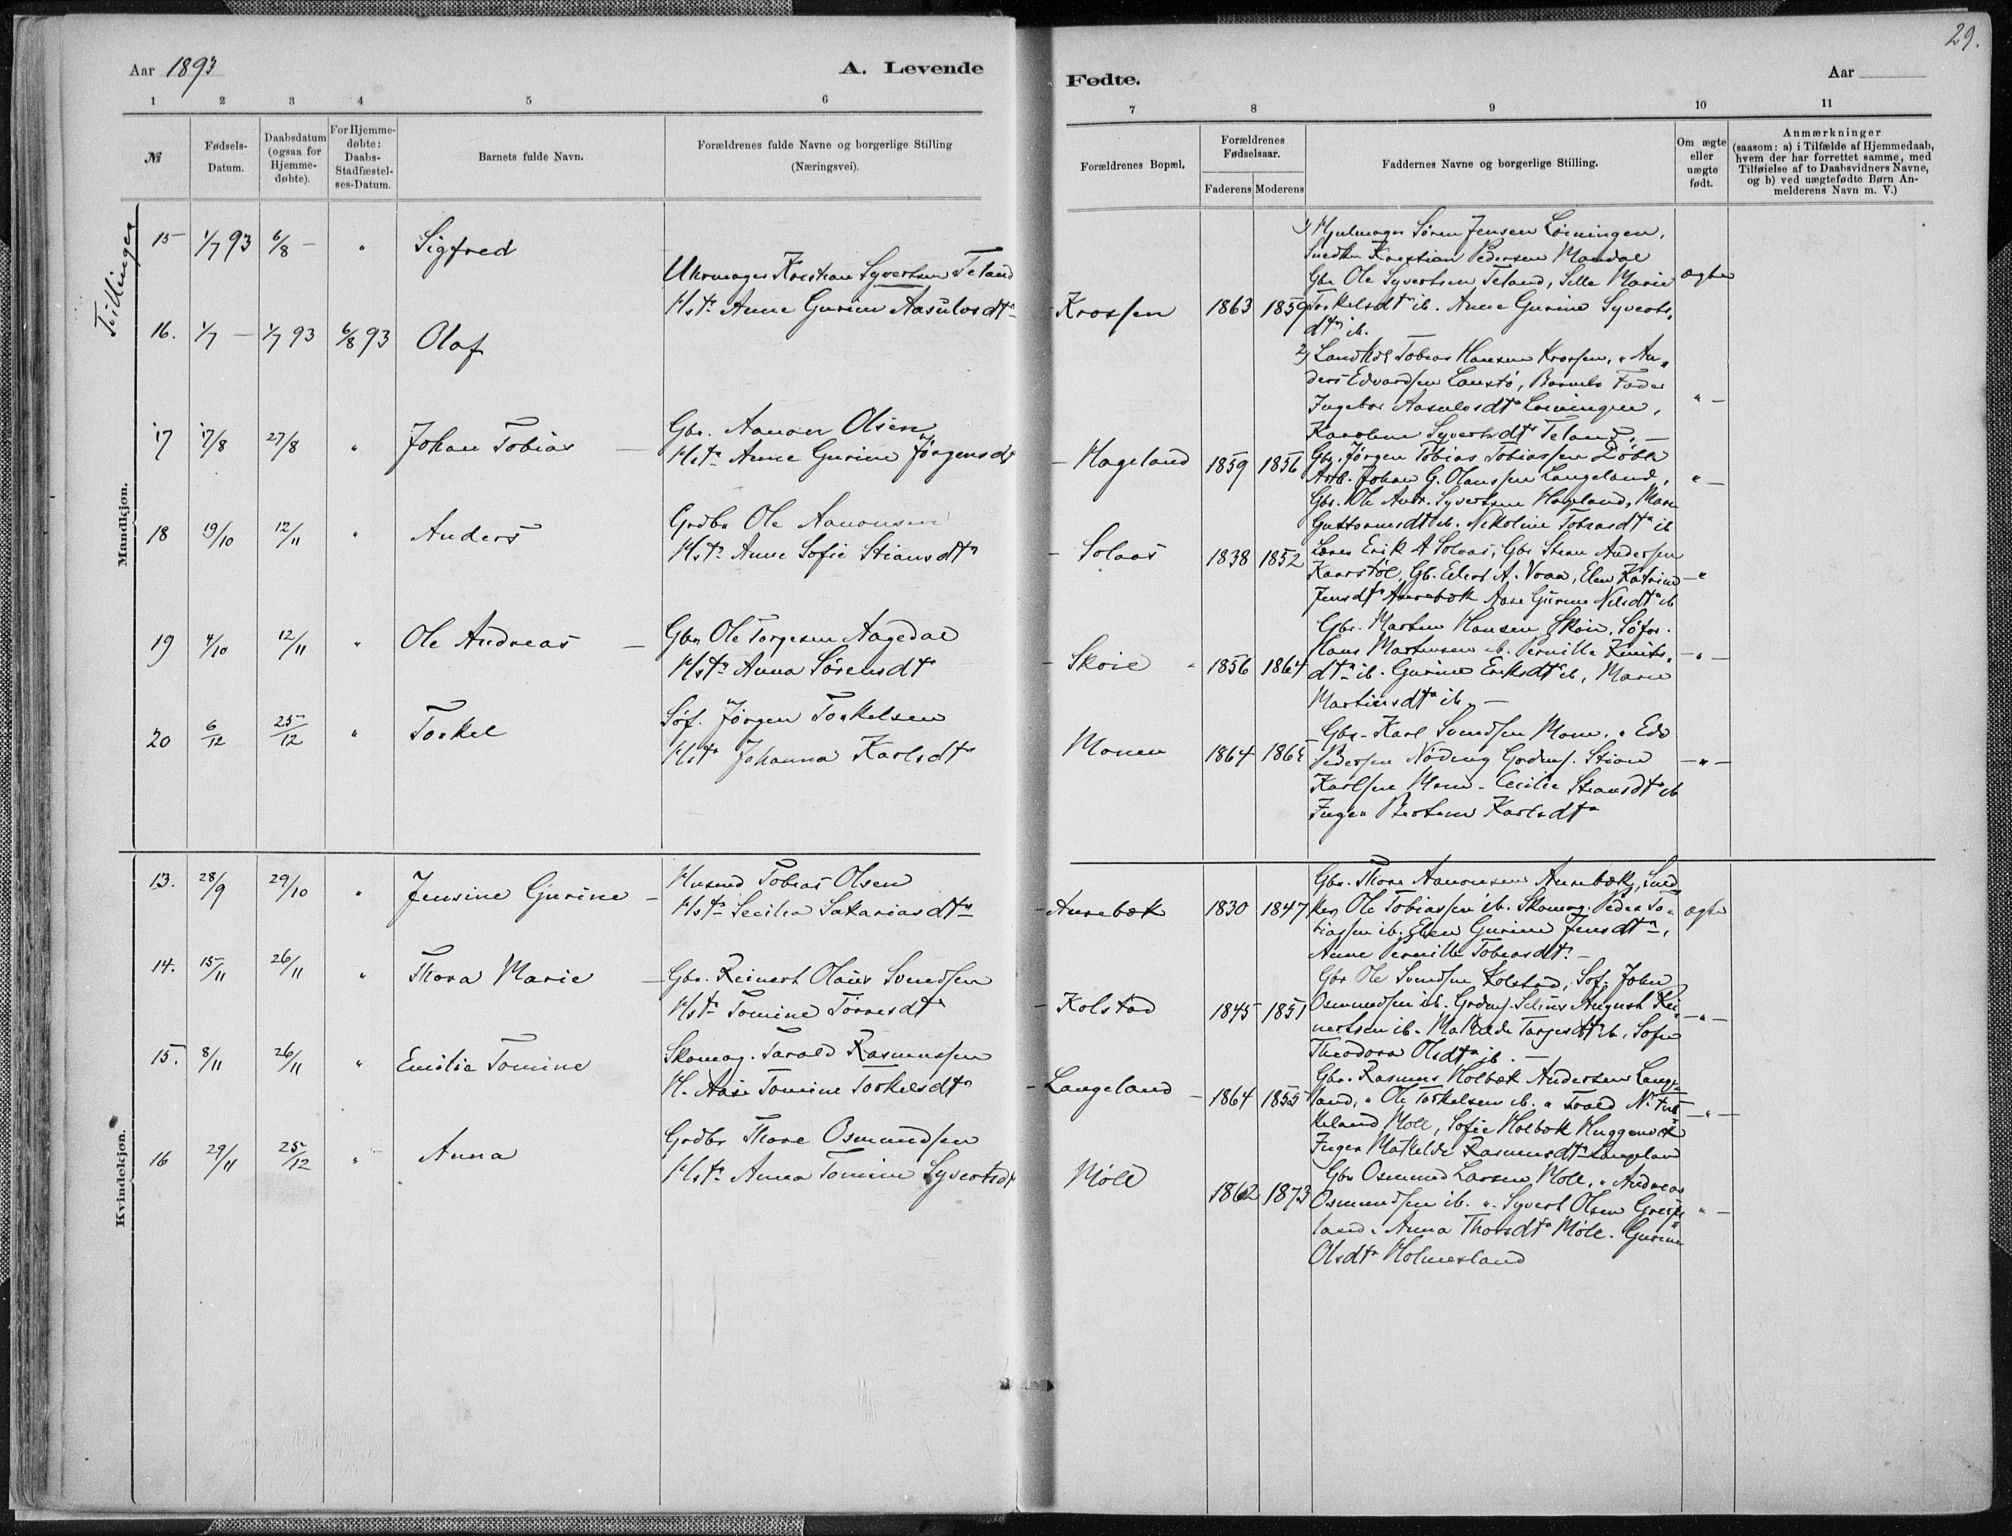 29.
Aar 1893
A. Levende
Fødte.
Aar
1 2 3 4 5 6 7 8 9 10 11
№
Fødsels-Datum.
Daabsdatum (ogsaa for Hjemme-døbte).
For Hjemme-døbte: Daabs-Stadfæstel-ses-Datum.
Barnets fulde Navn.
Forældrenes fulde Navne og borgerlige Stilling
(Næringsvei).
Forældrenes Bopæl.
Forældrenes Fødselsaar.
Faderens Moderens
Faddernes Navne og borgerlige Stilling.
Om ægte eller uægte født.
Anmærkninger
(saasom: a) i Tilfælde af Hjemmedaab,
hvem der har forrettet samme, med
Tilføielse af to Daabsvidners Navne,
og b) ved uægtefødte Børn An-
melderens Navn m. V.)
Tvillinger
Mandkjøn.
15 1/7 93 6/8 - " Sigfred
Uhrmager Kristian Syvertsen Teland
Hst. Anne Gurine Aasulvsdtr
Krossen 1863 1859
1) Hjulmager Søren Jensen Løiningen,
Kristian Pedersen Mandal
Gbr Ole Syvertsen Teland, Sille Marie
Torkelsdtr ib. Anne Gurine Syverts-
dtr ib.
ægte
16. 1/7 - 1/7 93 6/8 93 Olaf
2) Tobias Hansen Krossen, " An-
ders Edvardsen Barnets Fader
Ingebor Aasulvsdtr Løiningen,
Karoline Syvertsdtr Teland. -
" -
17 17/8 27/8 " Johan Tobias -
Gbr. Aanon Olsen
Hst. Anne Gurine Jørgensdt
- Hageland 1859 1856
Gbr. Jørgen Tobias Tobiassen
Arb. Johan G. Olaussen Langeland,
Gbr. Ole Andr. Syvertsen Hageland,
Guttormsdt ib. Nikoline Tobiasdtr ib
" -
18 19/10 12/11 " Anders
Grdbr Ole Aanonsen
Hst. Anne Sofie Stiansdtr
- Solaas 1838 1852
Erik A Solaas, Gbr Stian Andersen
Gb. Edert A. Vraa, Elen Katrine
Jensdtr Aurebæk Aase Gurine Nilsdtr ib
- "
19 4/10 12/11 " Ole Andreas -
Gbr Ole Torgesen Aagedal
Hst. Anna Sørensdtr
- Skoie " 1856 1864
Gbr. Morten Hansen Skoie, Søfar.
Hans Martensen ib. Pernille Knuts-
dtr ib. Gurine Eriksdtr ib, Marie
Martinsdtr ib. -
- " -
20 6/12 25/12 " Torkel
Søf. Jørgen Torkelsen
Hst. Johanna Karlsdtr
Monen 1864 1865
Gbr. Karl Svendsen Mone, "
Pedersen Nøding Grdmf. Stian
Karlsen Mone - Cecilie Stiansdtr ib
Inger Bertine Karlsdtr
- " -
Kvindekjøn.
13. 28/9 29/10 " Jensine Gurine -
Husmd Tobias Olsen
Hst. Secilia Sakariasdtr
- Aurebæk 1830 1847
Gbr. Thore Aanonsen Aurebæk, Sned-
ker Ole Tobiassen ib. Skomag. Peder To-
biassen ib. Elen Gurine Jensdtr,
Anne Pernille Tobiasdtr. -
ægte
14. 15/11 26/11 " Thora Marie -
Gbr. Reinert Olaus Svendsen
Hst. Tomine Torresdt
- Kolstad 1845 1851
Gbr Ole Svendsen Kolstad, Søf. John
Osmundsen ib. Grdmf. Selius August Rei-
nertsen ib. Matilde Targesdtr ib, Sofie
Theodora Olsdtr ib. -
- " -
15. 8/11 26/11 " Emilie Tomine
Skomag. Tarald Rasmussen
H. Aase Tomine Torkelsdtr
- Langeland - 1864 1855
Gbr. Rasmus Holbæk Andersen Lange-
land, " Ole Torkelsen ib. "
Møll, Sofie Holbæk
Inger Matilde Rasmusdtr Langeland
- " -
16 29/11 25/12 " Anna
Grdbr Thore Osmundsen
Hst. Anna Tomine Syvertsdt
Møll 1862 1873
Gbr Osmund Larsen Møll, " Andreas
Osmundsen ib. " Syvert Olsen Greips-
land. Anna Thorsdtr Møll. Gurine
Olsdtr Holmesland
" -